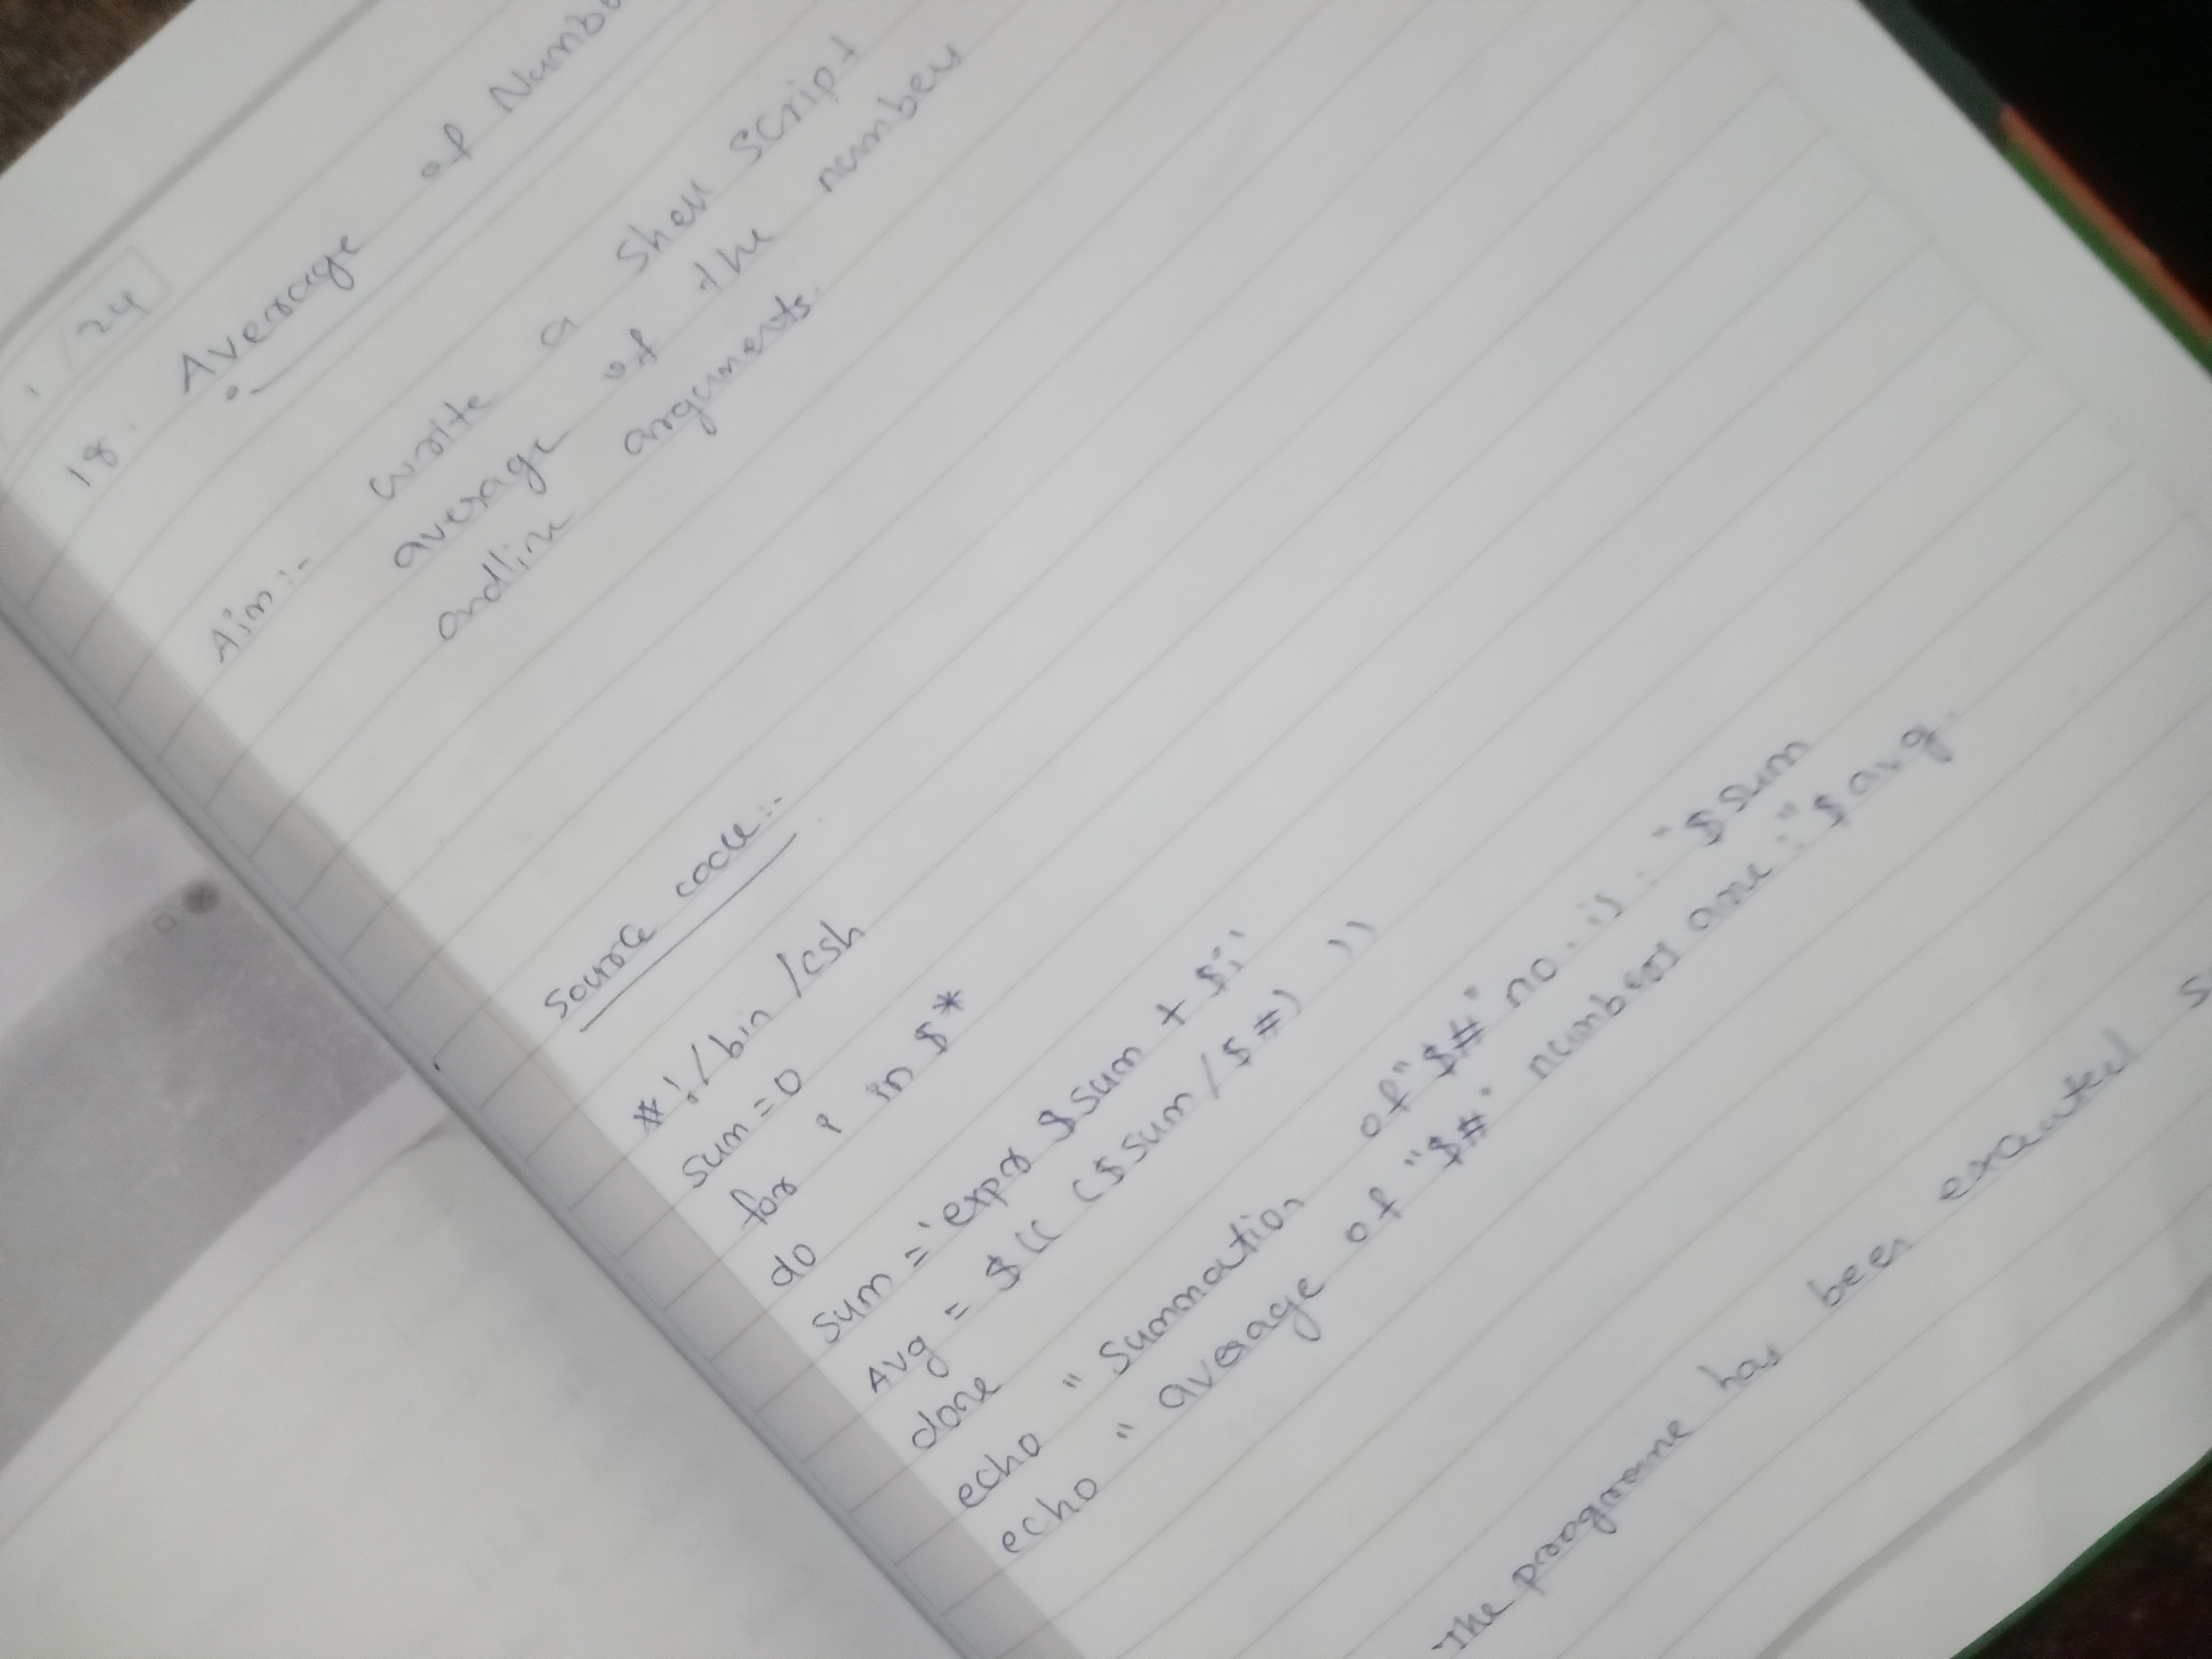 / 24
18.
Average of Numbe
Aim:- write a shell script
average of the numbers
andline arguments.
Source code:-
#!/bin/csh
Sum=0
for i in $*
do
Sum='expr $sum + $i'
Avg = $(( ($sum/$#) ))
done
echo "Summation of"$#" no. is: "$sum
echo "average of "$#" numbers are: "$avg.
The programe has been executed